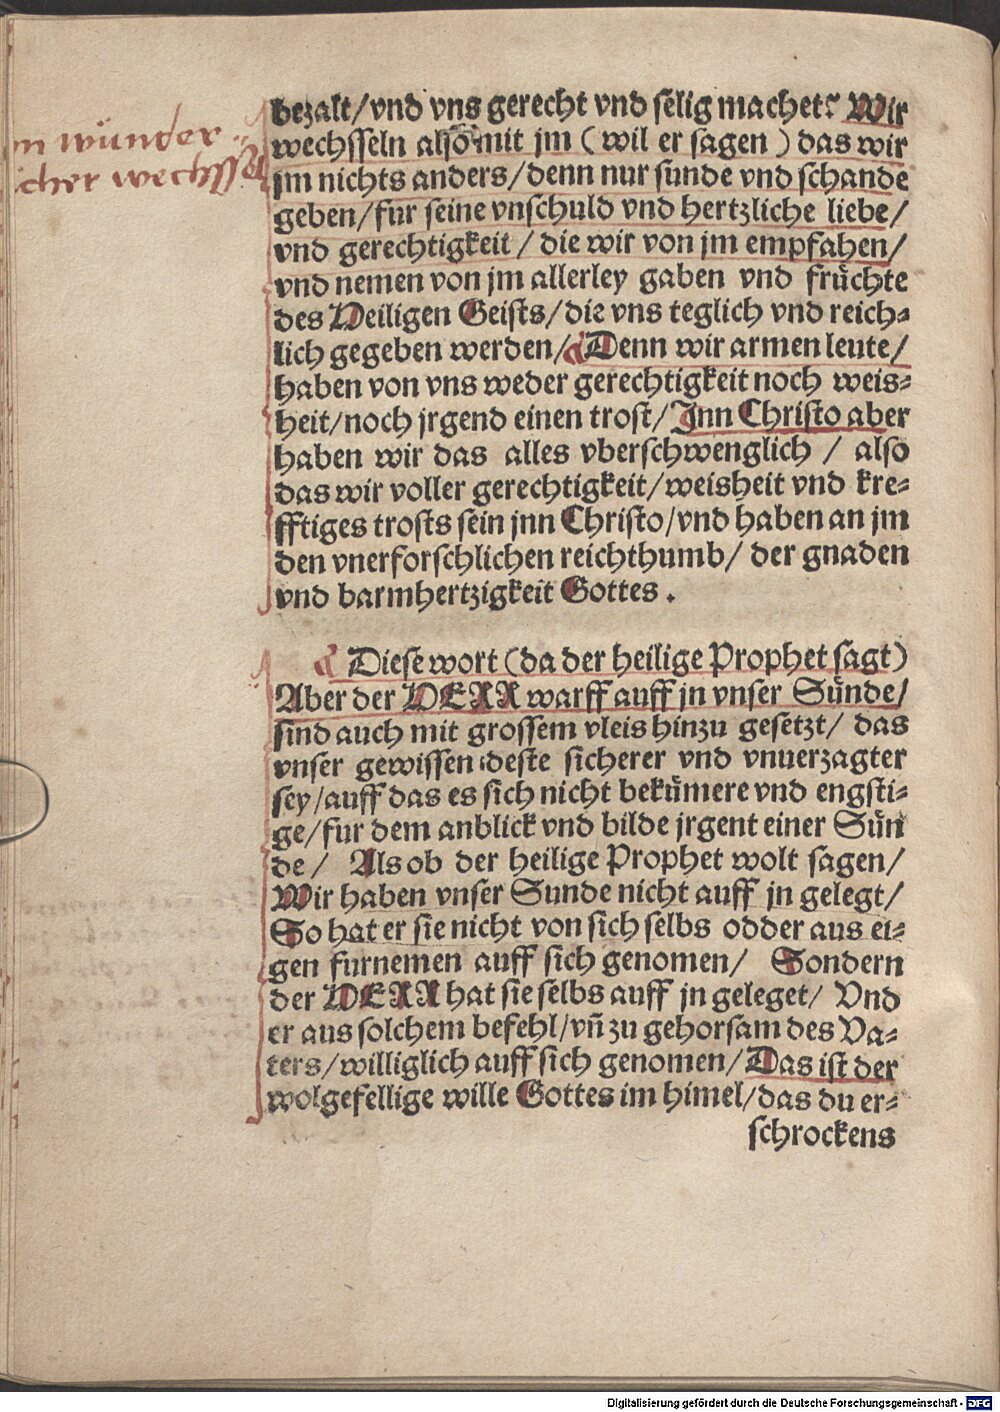 n wünder
icher wechssel
bezalt/vnd vns gerecht vnd selig machet? Wir
wechsseln also mit jm ( wil er sagen ) das wir
jm nichts anders/denn nur sunde vnd schande
geben/fur seine vnschuld vnd hertzliche liebe/
vnd gerechtigkeit / die wir von jm empfahen/
vnd nemen von jm allerley gaben vnd früchte
des Heiligen Geists/die vns teglich vnd reich⸗
lich gegeben werden/Denn wir armen leute/
haben von vns weder gerechtigkeit noch weis⸗
heit/noch jrgend einen trost/Jnn Christo aber
haben wir das alles vberschwenglich / also
das wir voller gerechtigkeit/weisheit vnd kre⸗
fftiges trosts sein jnn Christo/vnd haben an jm
den vnerforschlichen reichthumb/ der gnaden
vnd barmhertzigkeit Gottes .
Diese wort (da der heilige Prophet sagt)
Aber der HERR warff auff jn vnser Sünde/
sind auch mit grossem vleis hinzu gesetzt/ das
vnser gewissen deste sicherer vnd vnuerzagter
sey/auff das es sich nicht bekümere vnd engsti⸗
ge/fur dem anblick vnd bilde jrgent einer Sün
de / Als ob der heilige Prophet wolt sagen/
Wir haben vnser Sunde nicht auff jn gelegt/
So hat er sie nicht von sich selbs odder aus ei⸗
gen furnemen auff sich genomen/ Sondern
der HERR hat sie selbs auff jn geleget/ Vnd
er aus solchem befehl/vñ zu gehorsam des Va⸗
ters/williglich auff sich genomen/Das ist der
wolgefellige wille Gottes im himel/das du er⸗
schrockens
Digitalisierung gefördert durch die Deutsche Forschungsgemeinschaft - DFG